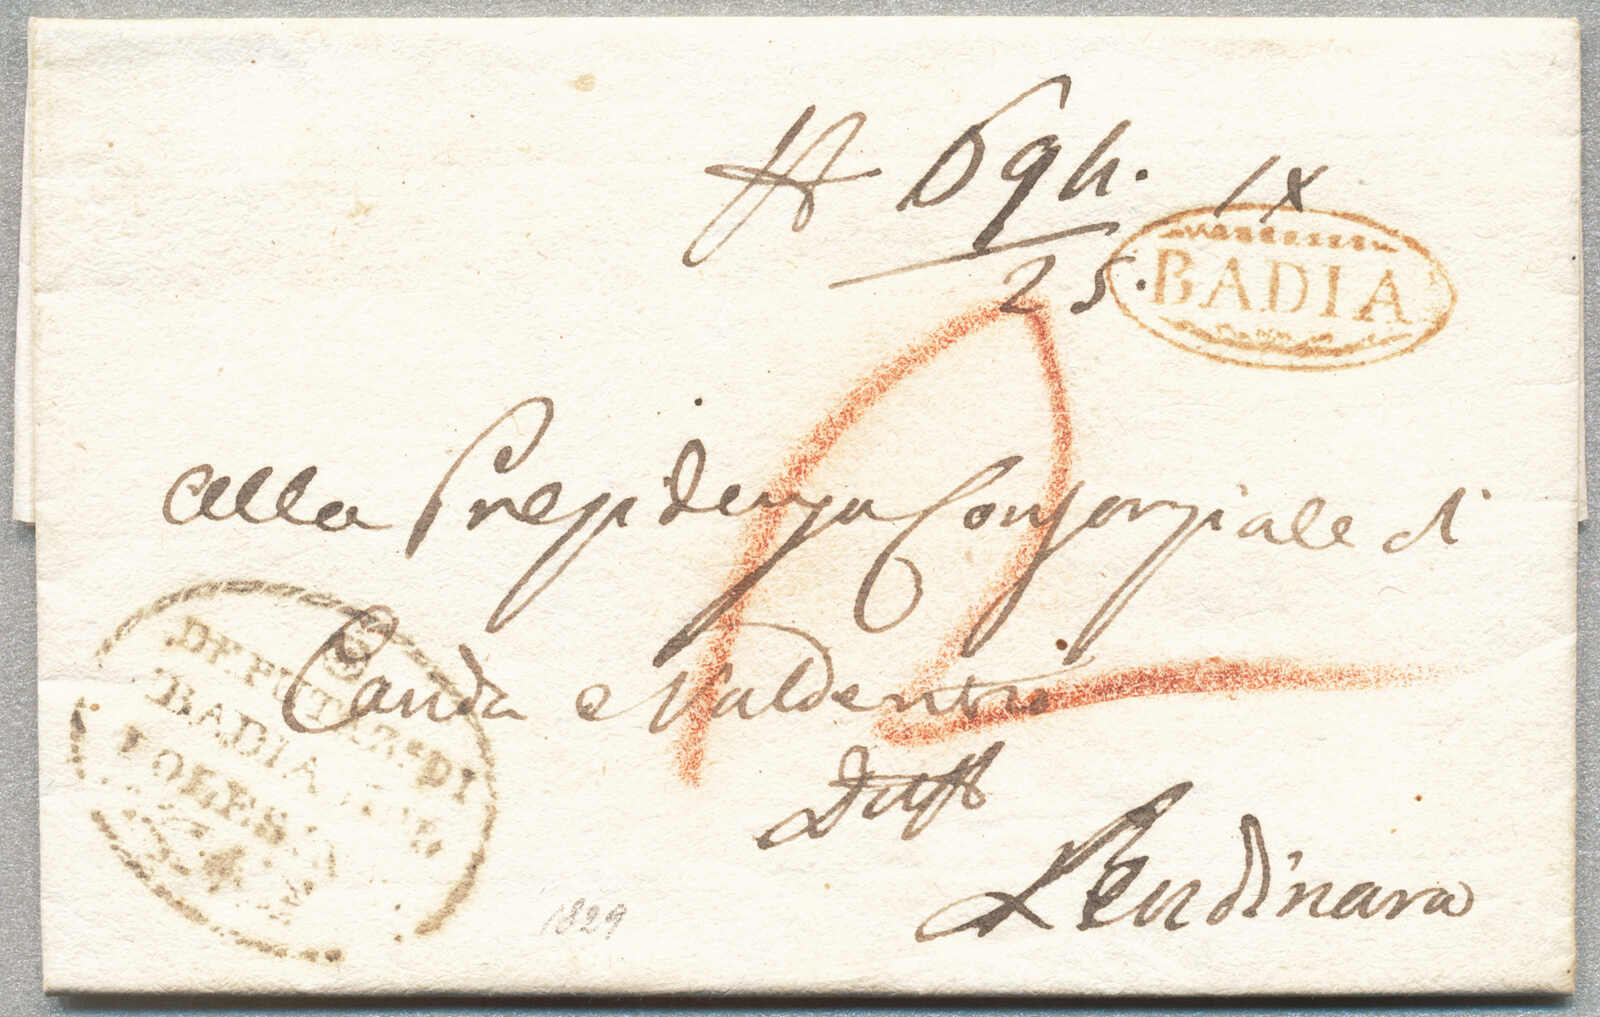 IX
25.
BADIA
Alla Presidenza Consorziale di
Canda e Valdentro
Lendinara
DEPUTAZ.e DI
BADIA
POLESI
1829